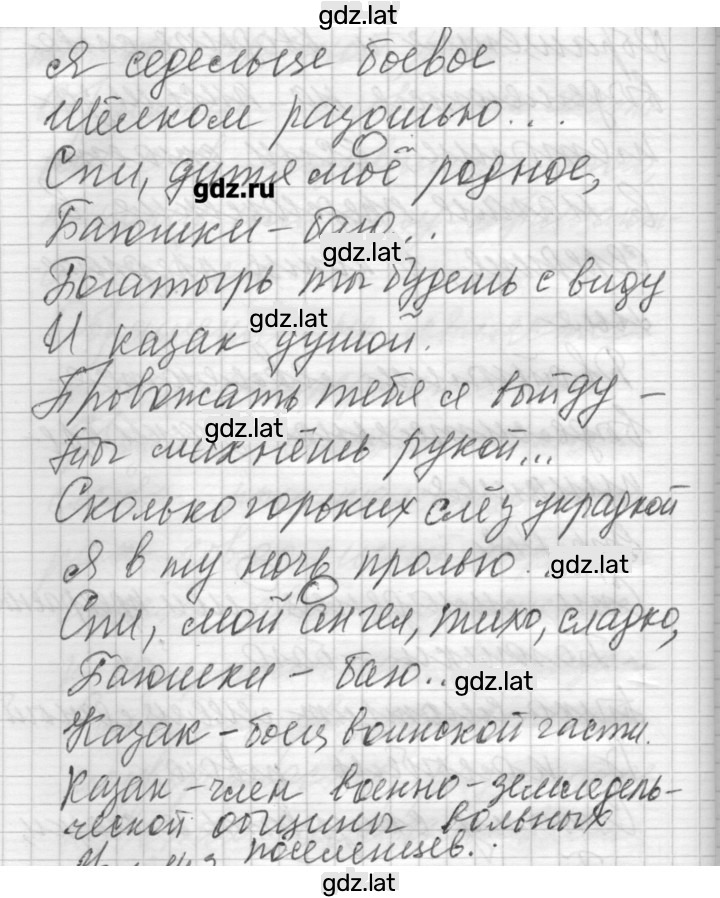 gdz.lat
Я седельце боевое
Шёлком разошью...
Спи, дитя моё родное,
gdz.ru
Баюшки-баю...
gdz.lat
Богатырь ты будешь с виду
gdz.lat
И казак душой.
Провожать тебя я выйду –
gdz.lat
Ты махнёшь рукой...
Сколько горьких слёз украдкой
Я в ту ночь пролью...
gdz.lat
Спи, мой ангел, тихо, сладко,
Баюшки-баю...
gdz.lat
Казак – боец воинской части.
Казак – член военно-земледель-
ческой общины вольных
поселенцев.
gdz.lat